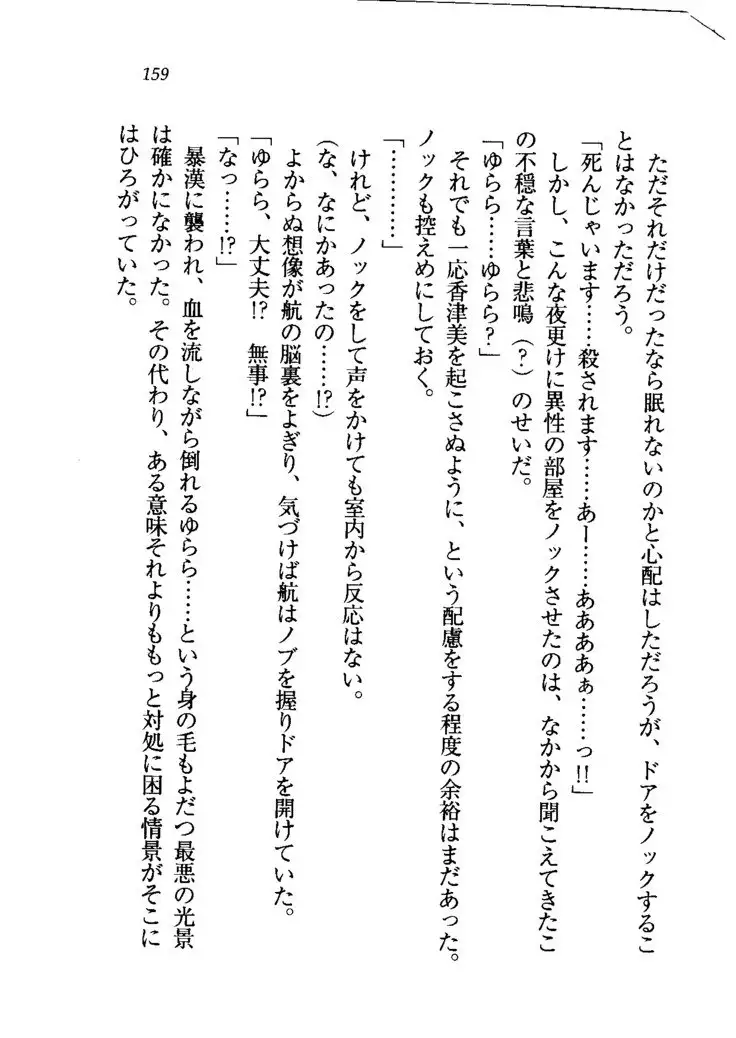 159
ただそれだけだったなら眠れないのかと心配はしただろうが、ドアをノックするこ
とはなかっただろう。
「死んじゃいます……殺されます……あー……ああああぁ……っ!!」
しかし、こんな夜更けに異性の部屋をノックさせたのは、なかから聞こえてきたこ
の不穏な言葉と悲鳴(?)のせいだ。
「ゆらら……ゆらら?」
それでも一応香津美を起こさぬように、という配慮をする程度の余裕はまだあった。
ノックも控えめにしておく。
「…………」
けれど、ノックをして声をかけても室内から反応はない。
(な、なにかあったの……!?)
よからぬ想像が航の脳裏をよぎり、気づけば航はノブを握りドアを開けていた。
「ゆらら、大丈夫!? 無事!?」
「なっ……!?」
暴漢に襲われ、血を流しながら倒れるゆらら……という身の毛もよだつ最悪の光景
は確かになかった。その代わり、ある意味それよりももっと対処に困る情景がそこに
はひろがっていた。